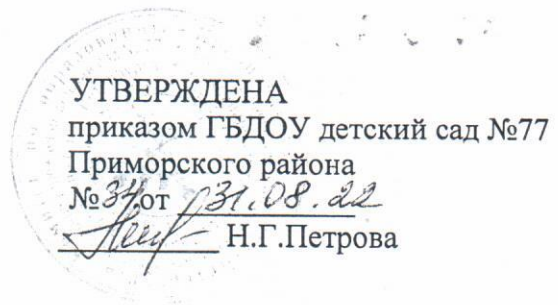 УТВЕРЖДЕНА
приказом ГБДОУ детский сад №77
Приморского района
№34 от 31.08.22
Н.Г.Петрова